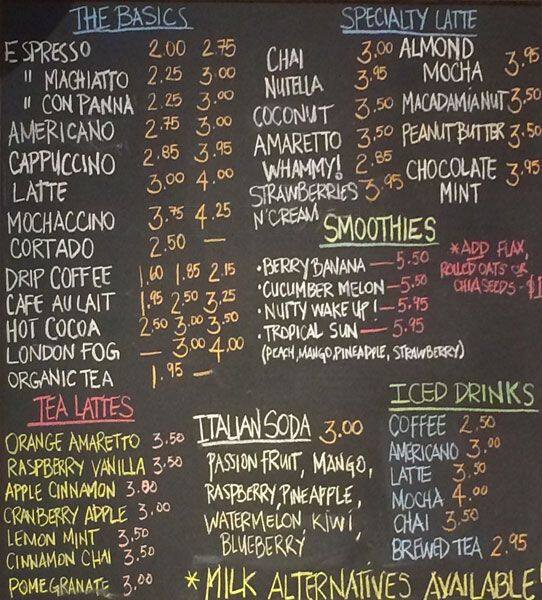 THE BASICS
ESPRESSO 2.00 2.75
" MACHIATTO 2.25 3.00
" CON PANNA 2.25 3.00
AMERICANO 2.75 3.00
CAPPUCCINO 2.85 3.95
LATTE 3.00 4.00
MOCHACCINO 3.75 4.25
CORTADO 2.50 —
DRIP COFFEE 1.60 1.85 2.15
CAFE AU LAIT 1.95 2.50 3.25
HOT COCOA 2.50 3.00 3.50
LONDON FOG — 3.00 4.00
ORGANIC TEA 1.95 —
SPECIALTY LATTE
CHAI 3.00
NUTELLA 3.95
COCONUT 3.50
AMARETTO 3.50
WHAMMY! 2.85
STRAWBERRIES 3.95
N'CREAM
ALMOND
MOCHA 3.95
MACADAMIA NUT 3.50
PEANUT BUTTER 3.50
CHOCOLATE 3.95
MINT
SMOOTHIES
• BERRY BANANA — 5.50
• CUCUMBER MELON — 5.50
• NUTTY WAKE UP! — 5.95
• TROPICAL SUN — 5.95
(PEACH, MANGO, PINEAPPLE, STRAWBERRY)
*ADD FLAX,
ROLLED OATS OR
CHIA SEEDS - $1
TEA LATTES
ORANGE AMARETTO 3.50
RASPBERRY VANILLA 3.50
APPLE CINNAMON 3.00
CRANBERRY APPLE 3.00
LEMON MINT 3.50
CINNAMON CHAI 3.50
POMEGRANATE 3.00
ITALIAN SODA 3.00
PASSION FRUIT, MANGO,
RASPBERRY, PINEAPPLE,
WATERMELON, KIWI,
BLUEBERRY
ICED DRINKS
COFFEE 2.50
AMERICANO 3.00
LATTE 3.50
MOCHA 4.00
CHAI 3.50
BREWED TEA 2.95
* MILK ALTERNATIVES AVAILABLE!